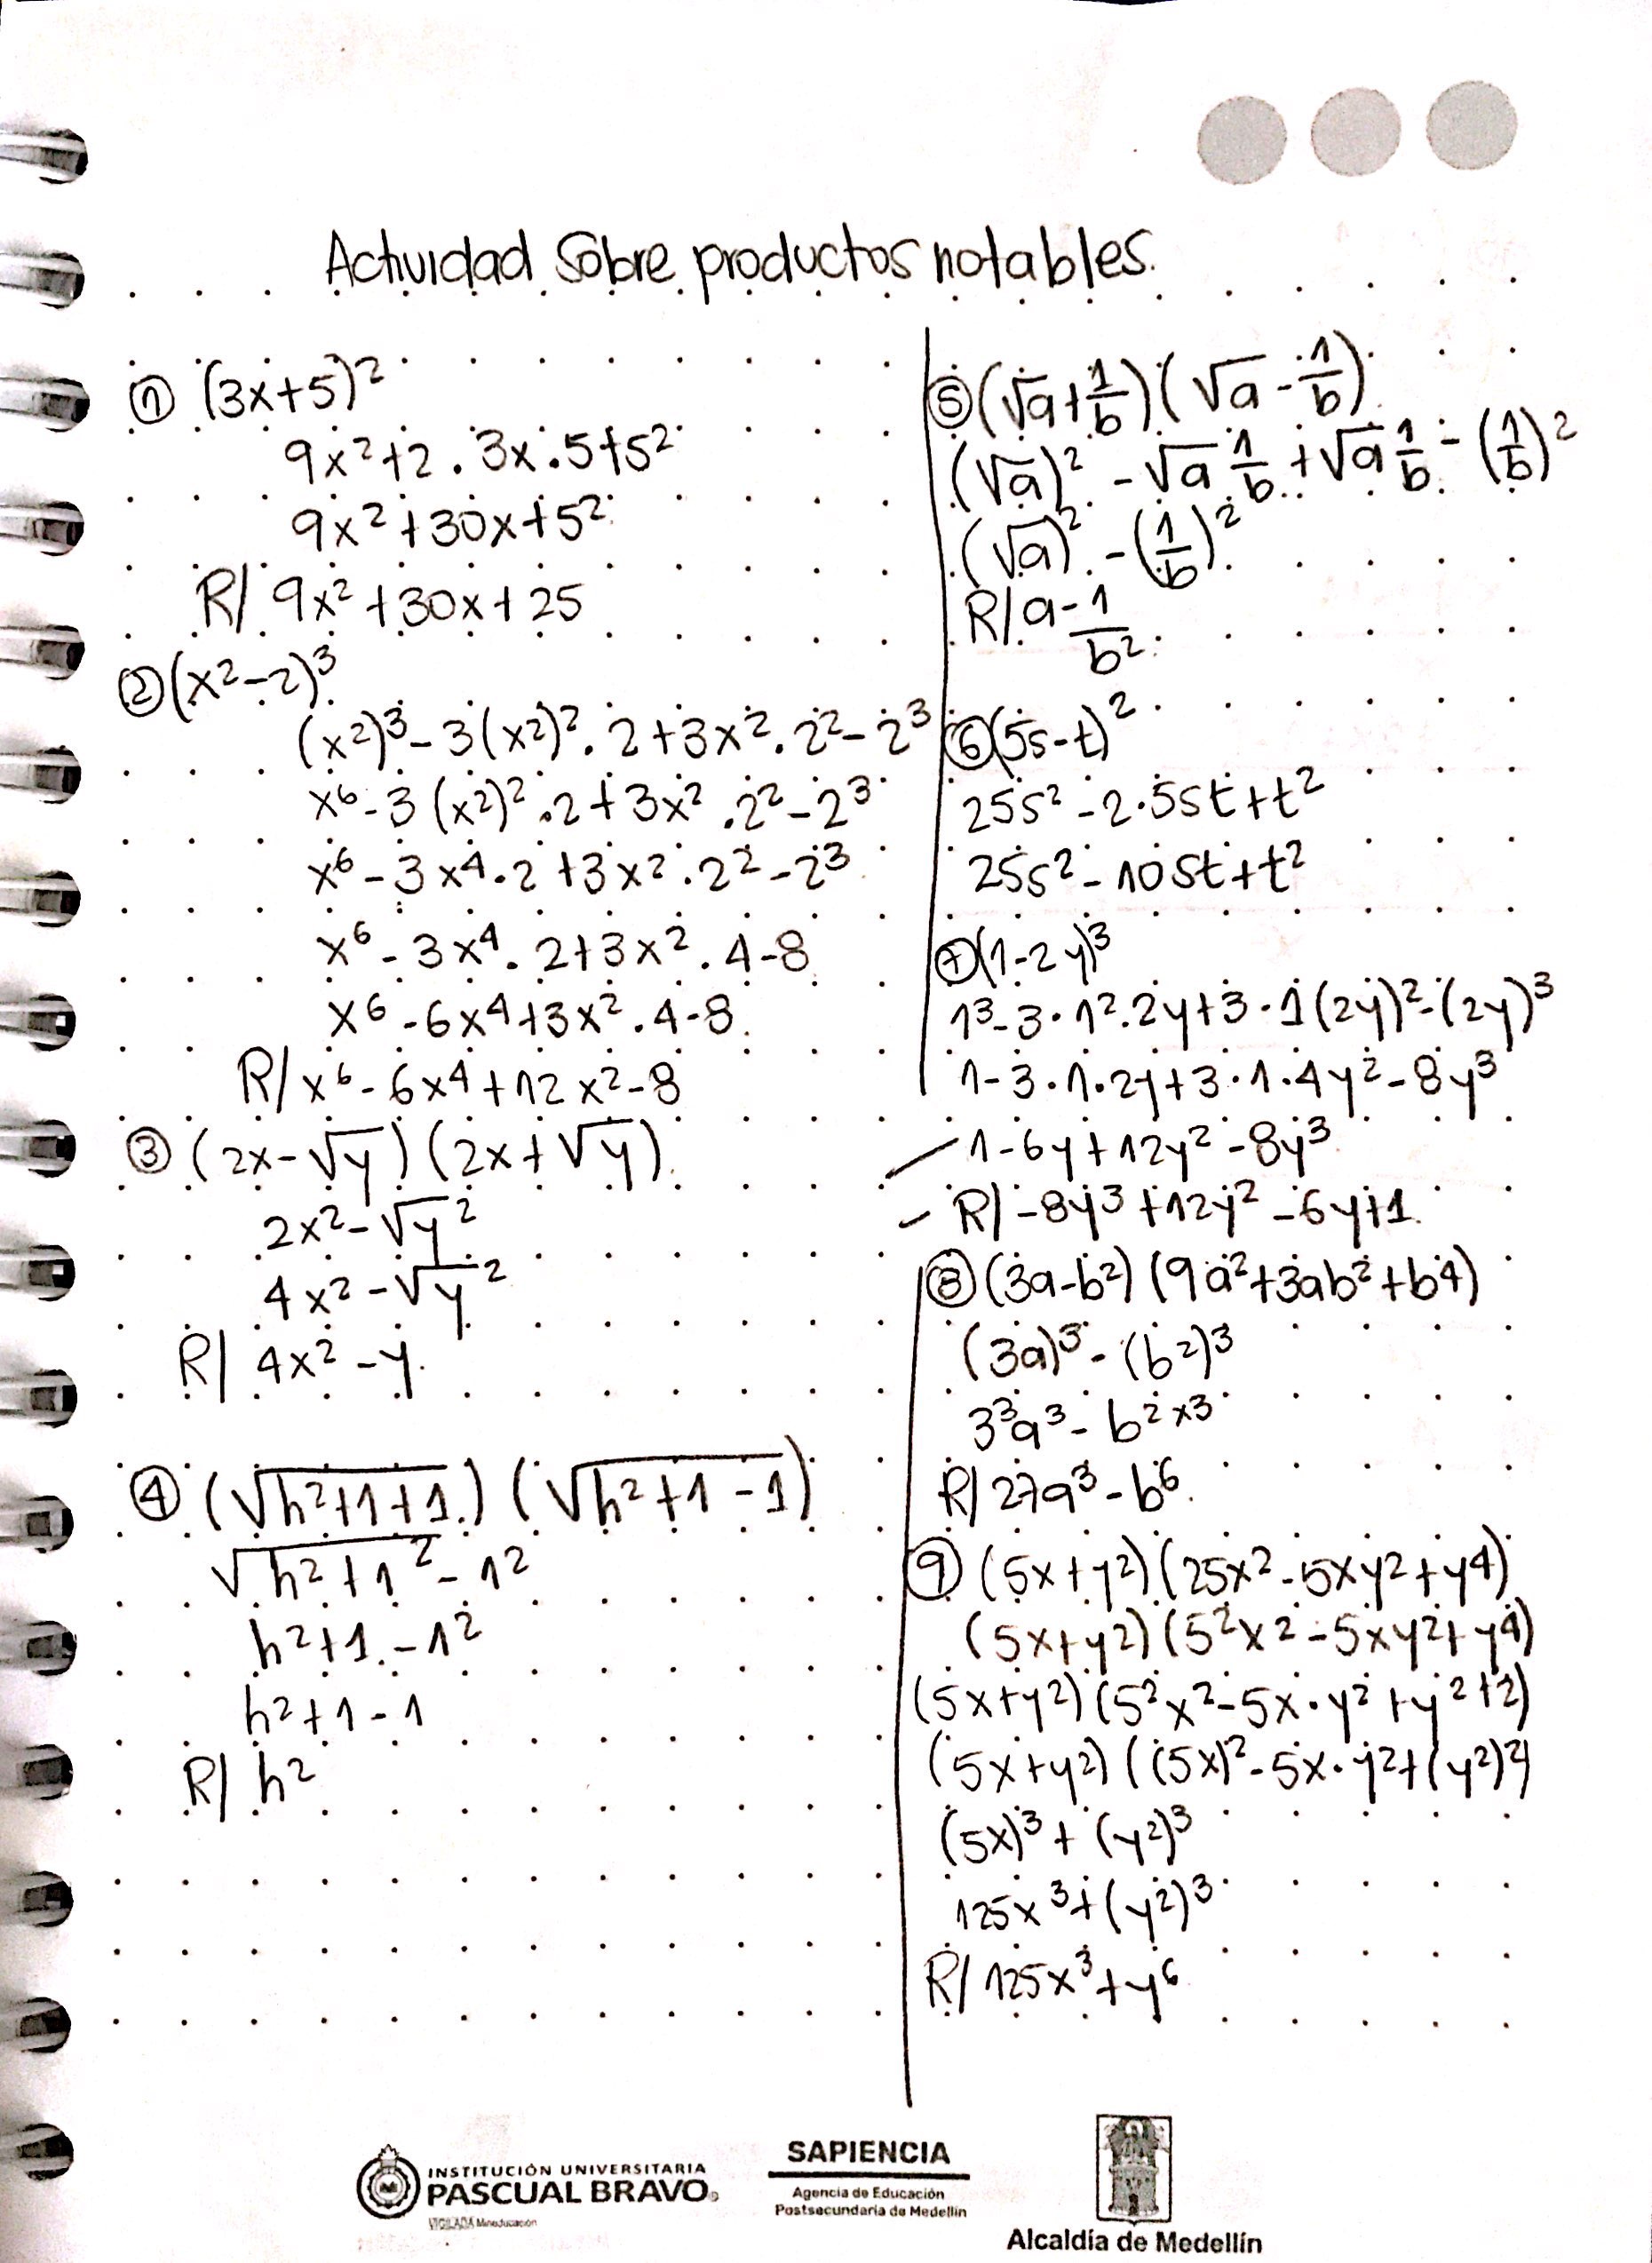 Actividad Sobre productos notables.
① (3x+5)²
9x²+2.3x.5+5²
9x²+30x+5²
R/ 9x²+30x+25
② (x²-2)³
(x²)³-3(x²)².2+3x².2²-2³
x⁶-3(x²)².2+3x².2²-2³
x⁶-3x⁴.2+3x².2²-2³
x⁶-3x⁴.2+3x².4-8
x⁶-6x⁴+3x².4-8
R/ x⁶-6x⁴+12x²-8
③ (2x-√y)(2x+√y)
2x²-√y²
4x²-√y²
R/ 4x²-y
④ (√h²+1+1)(√h²+1-1)
√h²+1²-1²
h²+1-1²
h²+1-1
R/ h²
⑤ (√a+1/b)(√a-1/b)
(√a)²-√a 1/b+√a 1/b-(1/b)²
(√a)²-(1/b)²
R/ a-1/b²
⑥ (5s-t)²
25s²-2.5st+t²
25s²-10st+t²
⑦ (1-2y)³
1³-3.1².2y+3.1(2y)²-(2y)³
1-3.1.2y+3.1.4y²-8y³
1-6y+12y²-8y³
R/ -8y³+12y²-6y+1
⑧ (3a-b²)(9a²+3ab²+b4)
(3a)³-(b²)³
3³a³-b²ˣ³
R/ 27a³-b⁶
⑨ (5x+y²)(25x²-5xy²+y⁴)
(5x+y²)(5²x²-5xy²+y⁴)
(5x+y²)(5²x²-5x.y²+y²⁺²)
(5x+y²)((5x)²-5x.y²+(y²)²)
(5x)³+(y²)³
125x³+(y²)³
R/ 125x³+y⁶
INSTITUCIÓN UNIVERSITARIA
PASCUAL BRAVO
VIGILADA Mineducación
SAPIENCIA
Agencia de Educación
Postsecundaria de Medellín
Alcaldía de Medellín